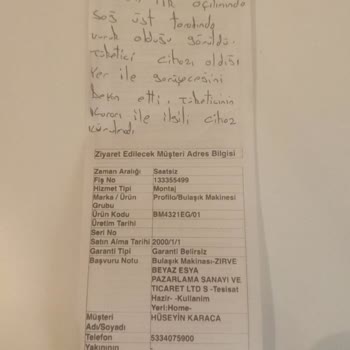 ilk açılımında
Sağ üst tarafında
vuruk olduğu görüldü.
Tüketici cihazı aldığı
Yer ile görüşeceğini
beyan etti. Tüketicinin
Kararı ile ilgili cihaz
Ziyaret Edilecek Müşteri Adres Bilgisi
Zaman Aralığı Saatsiz
Fiş No 133355499
Hizmet Tipi Montaj
Marka / Ürün Profilo/Bulaşık Makinesi
Grubu
Ürün Kodu BM4321EG/01
Üretim Tarihi
Seri No
Satın Alma Tarihi 2000/1/1
Garanti Tipi Garanti Belirsiz
Başvuru Notu Bulaşık Makinası-ZIRVE
BEYAZ ESYA
PAZARLAMA SANAYI VE
TICARET LTD S -Tesisat
Hazir- -Kullanim
Yeri:Home-
Müşteri HÜSEYİN KARACA
Adı/Soyadı
Telefon 5334075900
Yakınının